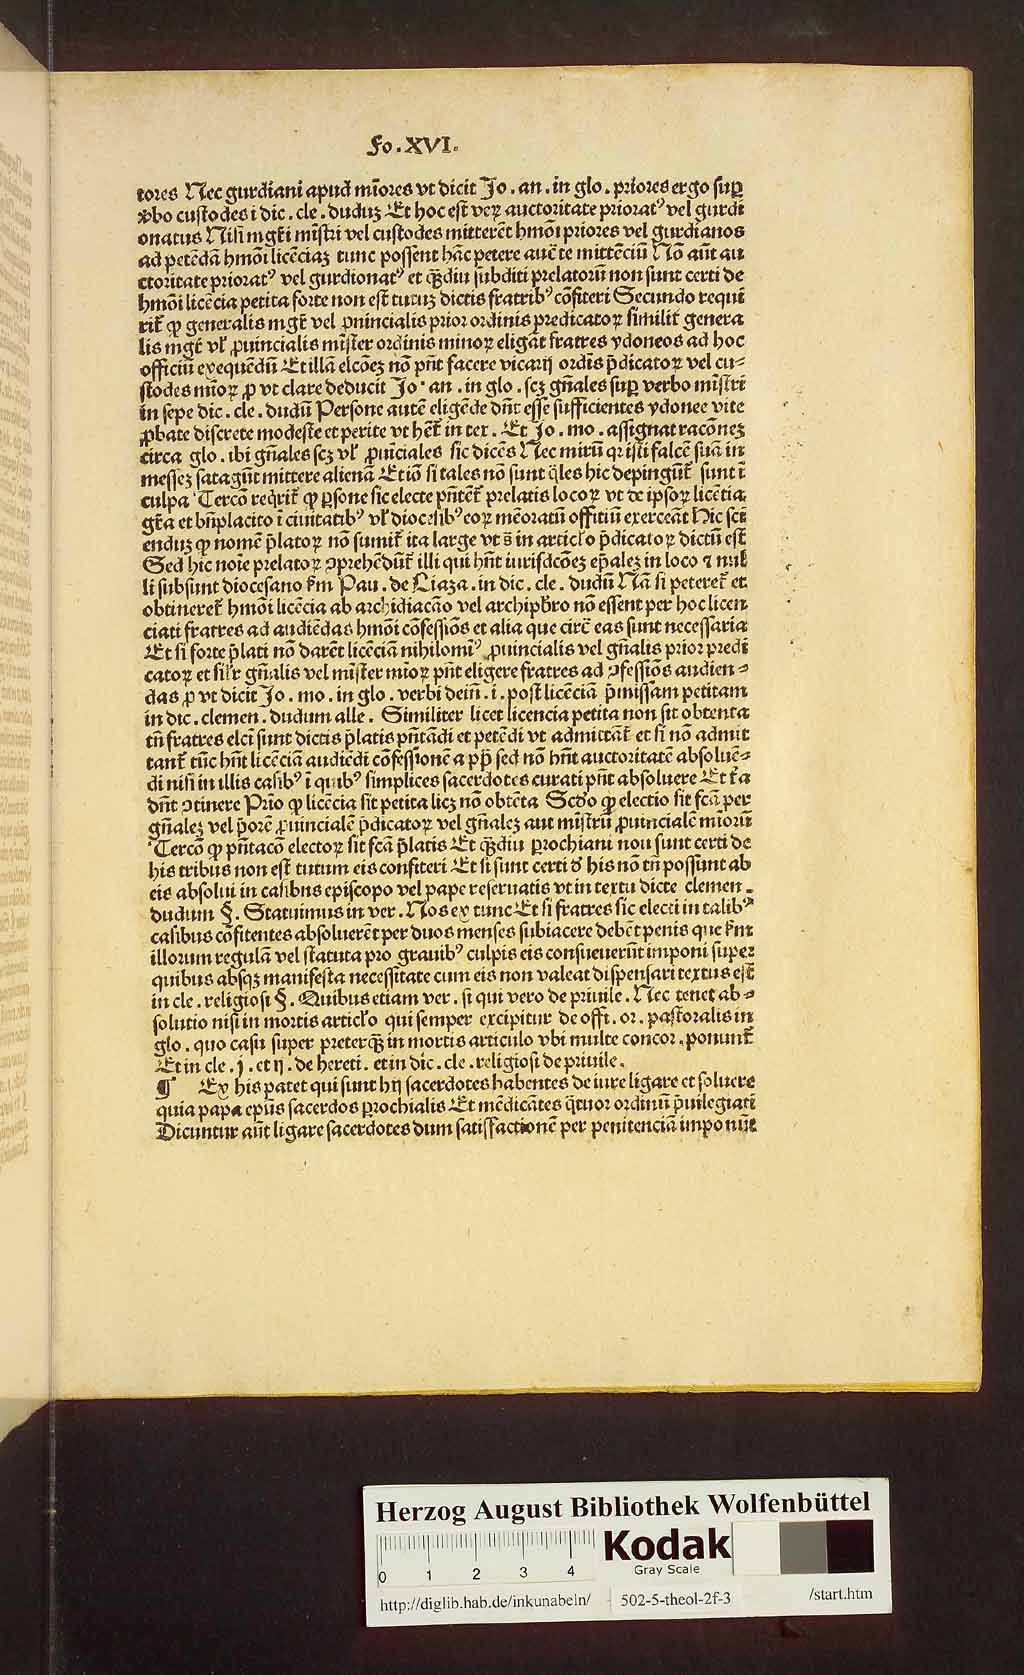 Fo.XVI.
tores Nec gurdiani apud mi᷑ores vt dicit Jo. an. in glo. priores ergo suꝑ
v̓bo custodes i dic. cle. duduꝫ Et hoc est veꝝ auctoritate priorat⁹ vel gurdi
onatus Nisi mgr̄i mīstri vel custodes mitterēt hmōi priores vel gurdianos
ad petēdā hmōi licēciaꝫ tunc possent hāc petere auc̄te mittēciū Nō aūt au
ctoritate priorat⁹ vel gurdionat⁹ et qꝫdiu subditi prelatorū non sunt certi de
hmōi licēcia petita forte non est tutuꝫ dictis fratrib⁹ cōfiteri Secundo requi
rit᷑ ꝙ generalis mgr̄ vel ꝓuincialis prior ordinis predicatoꝝ similit᷑ genera
lis mgr̄ vl᷑ ꝓuincialis mīster ordinis minoꝝ eligāt fratres ydoneos ad hoc
officiū exequēdū Et illā elcōeꝫ nō pn̄t facere vicarij ordīs p̄dicatoꝝ vel cu-
stodes mīoꝝ ꝓ vt clare deducit Jo. an. in glo. scꝫ gn̄ales suꝑ verbo mīstri
in sepe dic. cle. dudū Persone autē eligēde dn̄t esse sufficientes ydonee vite
ꝓbate discrete modeste et perite vt het᷑ in tex. Et Jo. mo. assignat racōneꝫ
circa glo. ibi gn̄ales scꝫ vl᷑ ꝓuīnciales sic dicēs Nec mirū qr isti falcē suā in
messeꝫ satagūt mittere alienā Etiō si tales nō sunt q̄les hic depingūt᷑ sunt ī
culpa Tercō req̄rit᷑ ꝙ ꝑsone sic electe pn̄tēt᷑ prelatis locoꝝ vt de ipsoꝝ licētia
gr̄a et bn̄placito ī ciuitatib⁹ vl᷑ diocesib⁹ eoꝝ mēoratū offitiū exerceāt Hic sci
enduꝫ ꝙ nomē p̄latoꝝ nō sumit᷑ ita large vt s̄ in articl̓o p̄dicatoꝝ dictū est
Sed hic noīe prelatoꝝ ꝯprehēdūt᷑ illi qui hn̄t iurisdcōeꝫ ep̄aleꝫ in loco ⁊ nul
li subsunt diocesano scdm Pau. de Liaza. in dic. cle. dudū Nā si peteret᷑ et
obtineret᷑ hmōi licēcia ab archidiacāo vel archipb̄ro nō essent per hoc licen
ciati fratres ad audiēdas hmōi cōfessiōs et alia que circ̄ eas sunt necessaria
Et si forte p̄lati nō darēt licēciā nihilomi⁹ ꝓuincialis vel gn̄alis prior predi
catoꝝ et sil᷑r gn̄alis vel mīster mīoꝝ pn̄t eligere fratres ad ꝯfessiōs audien-
das ꝓ vt dicit Jo. mo. in glo. verbi dein̄. i. post licēciā p̄missam petitam
in dic. clemen. dudum alle. Similiter licet licencia petita non sit obtenta
tn̄ fratres elci sunt dictis p̄latis pn̄tādi et petēdi vt admittāt᷑ et si nō admit
tant᷑ tūc hn̄t licēciā audiēdi cōfessionē a pp̄ sed nō hn̄t auctoritatē absoluē-
di nisi in illis casib⁹ ī quib⁹ simplices sacerdotes curati pn̄t absoluere Et tr̄a
dn̄t ꝯtinere Prīo ꝙ licēcia sit petita licꝫ nō obtēta Scd̓o ꝙ electio sit fcā per
gn̄aleꝫ vel p̄orē ꝓuincialē p̄dicatoꝝ vel gn̄aleꝫ aut mīstrū ꝓuincialē mīorū
Tercō ꝙ pn̄tacō electoꝝ sit fcā p̄latis Et qꝫdiu ꝑrochiani nou sunt certi de
his tribus non est tutum eis confiteri Et si sunt certi d̓ his nō tn̄ possunt ab
eis absolui in casibus episcopo vel pape reseruatis vt in textu dicte clemen.
dudum §. Statuimus in ver. Nos ex tunc Et si fratres sic electi in talib⁹
casibus cōfitentes absoluerēt per duos menses subiacere debēt penis que scdm
illorum regulā vel statuta pro grauib⁹ culpis eis consueuerūt imponi super
quibus absqꝫ manifesta necessitate cum eis non valeat dispensari textus est
in cle. religiosi §. Quibus etiam ver. si qui vero de priuile. Nec tenet ab-
solutio nisi in mortis articl̓o qui semper excipitur de offi. or. pastoralis in
glo. quo casu super preterqꝫ in mortis articulo vbi multe concor. ponunt᷑
Et in cle. j. et ij. de hereti. et in dic. cle. religiosi de priuile.
¶ Ex his patet qui sunt hij sacerdotes habentes de iure ligare et soluere
quia papa ep̄us sacerdos ꝑrochialis Et mēdicātes q̄tuor ordinū p̄uilegiati
Dicuntur aūt ligare sacerdotes dum satisfactionē per penitenciā imponūt
Herzog August Bibliothek Wolfenbüttel
0 1 2 3 4
Kodak
Gray Scale
http://diglib.hab.de/inkunabeln/ 502-5-theol-2f-3 /start.htm